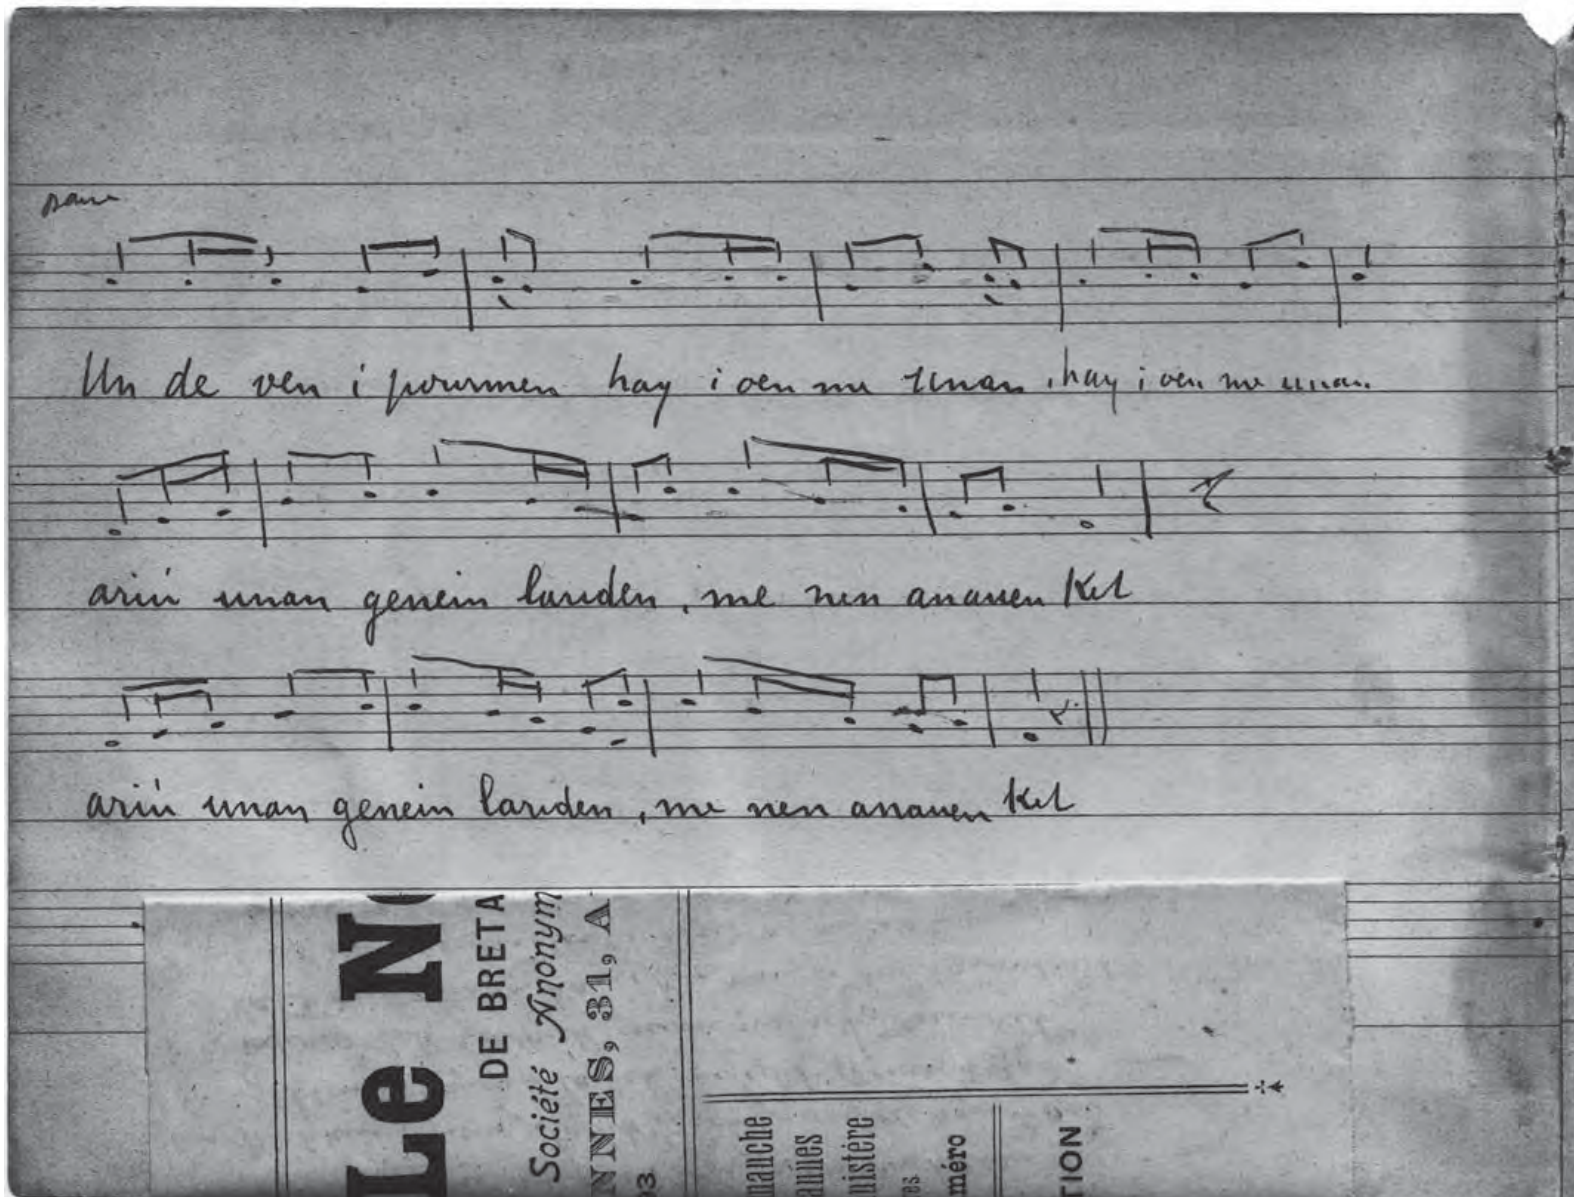 Un de ven i pourmen hay i oen me unan, hay i oen me unan
ariù unan genein lariden, me nen anauen Ket
ariù unan genein lariden, me nen anauen Ket
Le N
DE BRETA
Société Anonym
NNES, 31, A
93
manche
annes
nistère
res
méro
TION